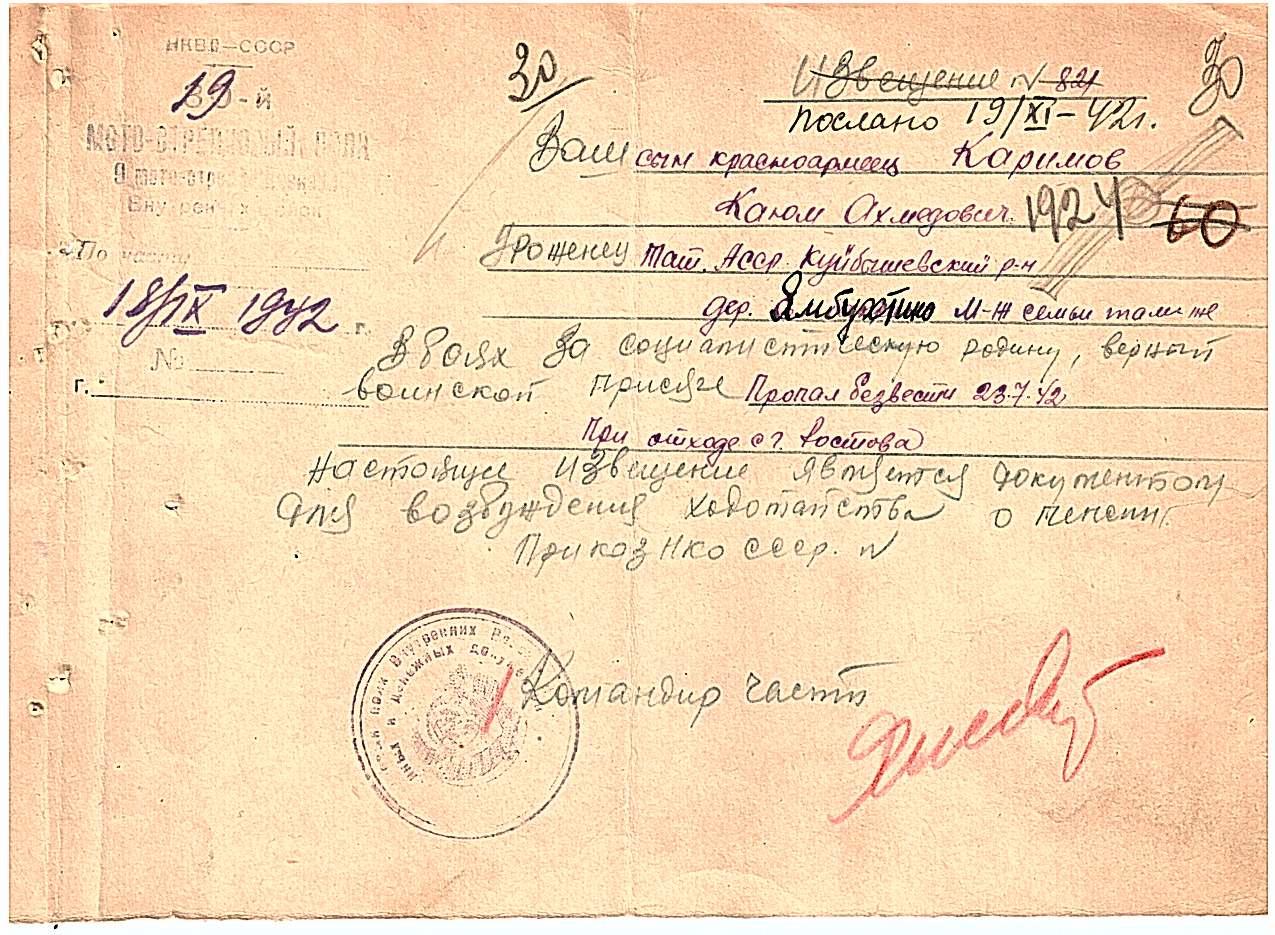 НКВД—СССР
19-й
МОТО-СТРЕЛКОВЫЙ ПОЛК
Внутренних войск
По части
18/IX 1942 г.
№
г.
30
30
Извещение № 84
послано 19/XI-42г.
Ваш сын красноармеец Каримов
Каюм Ахмедович. 1924 60
Уроженец Тат. Асср. Куйбышевский р-н
дер. Ямбухтино М-ж семьи там-же
В боях за социалистическую родину, верный
воинской присяге Пропал безвести 23.7.42
При отходе с г. Ростова
Настоящие Извещение является документом
для возбуждения ходотайства о пенсии.
Приказ НКО СССР. №
Командир части
полк Внутренних